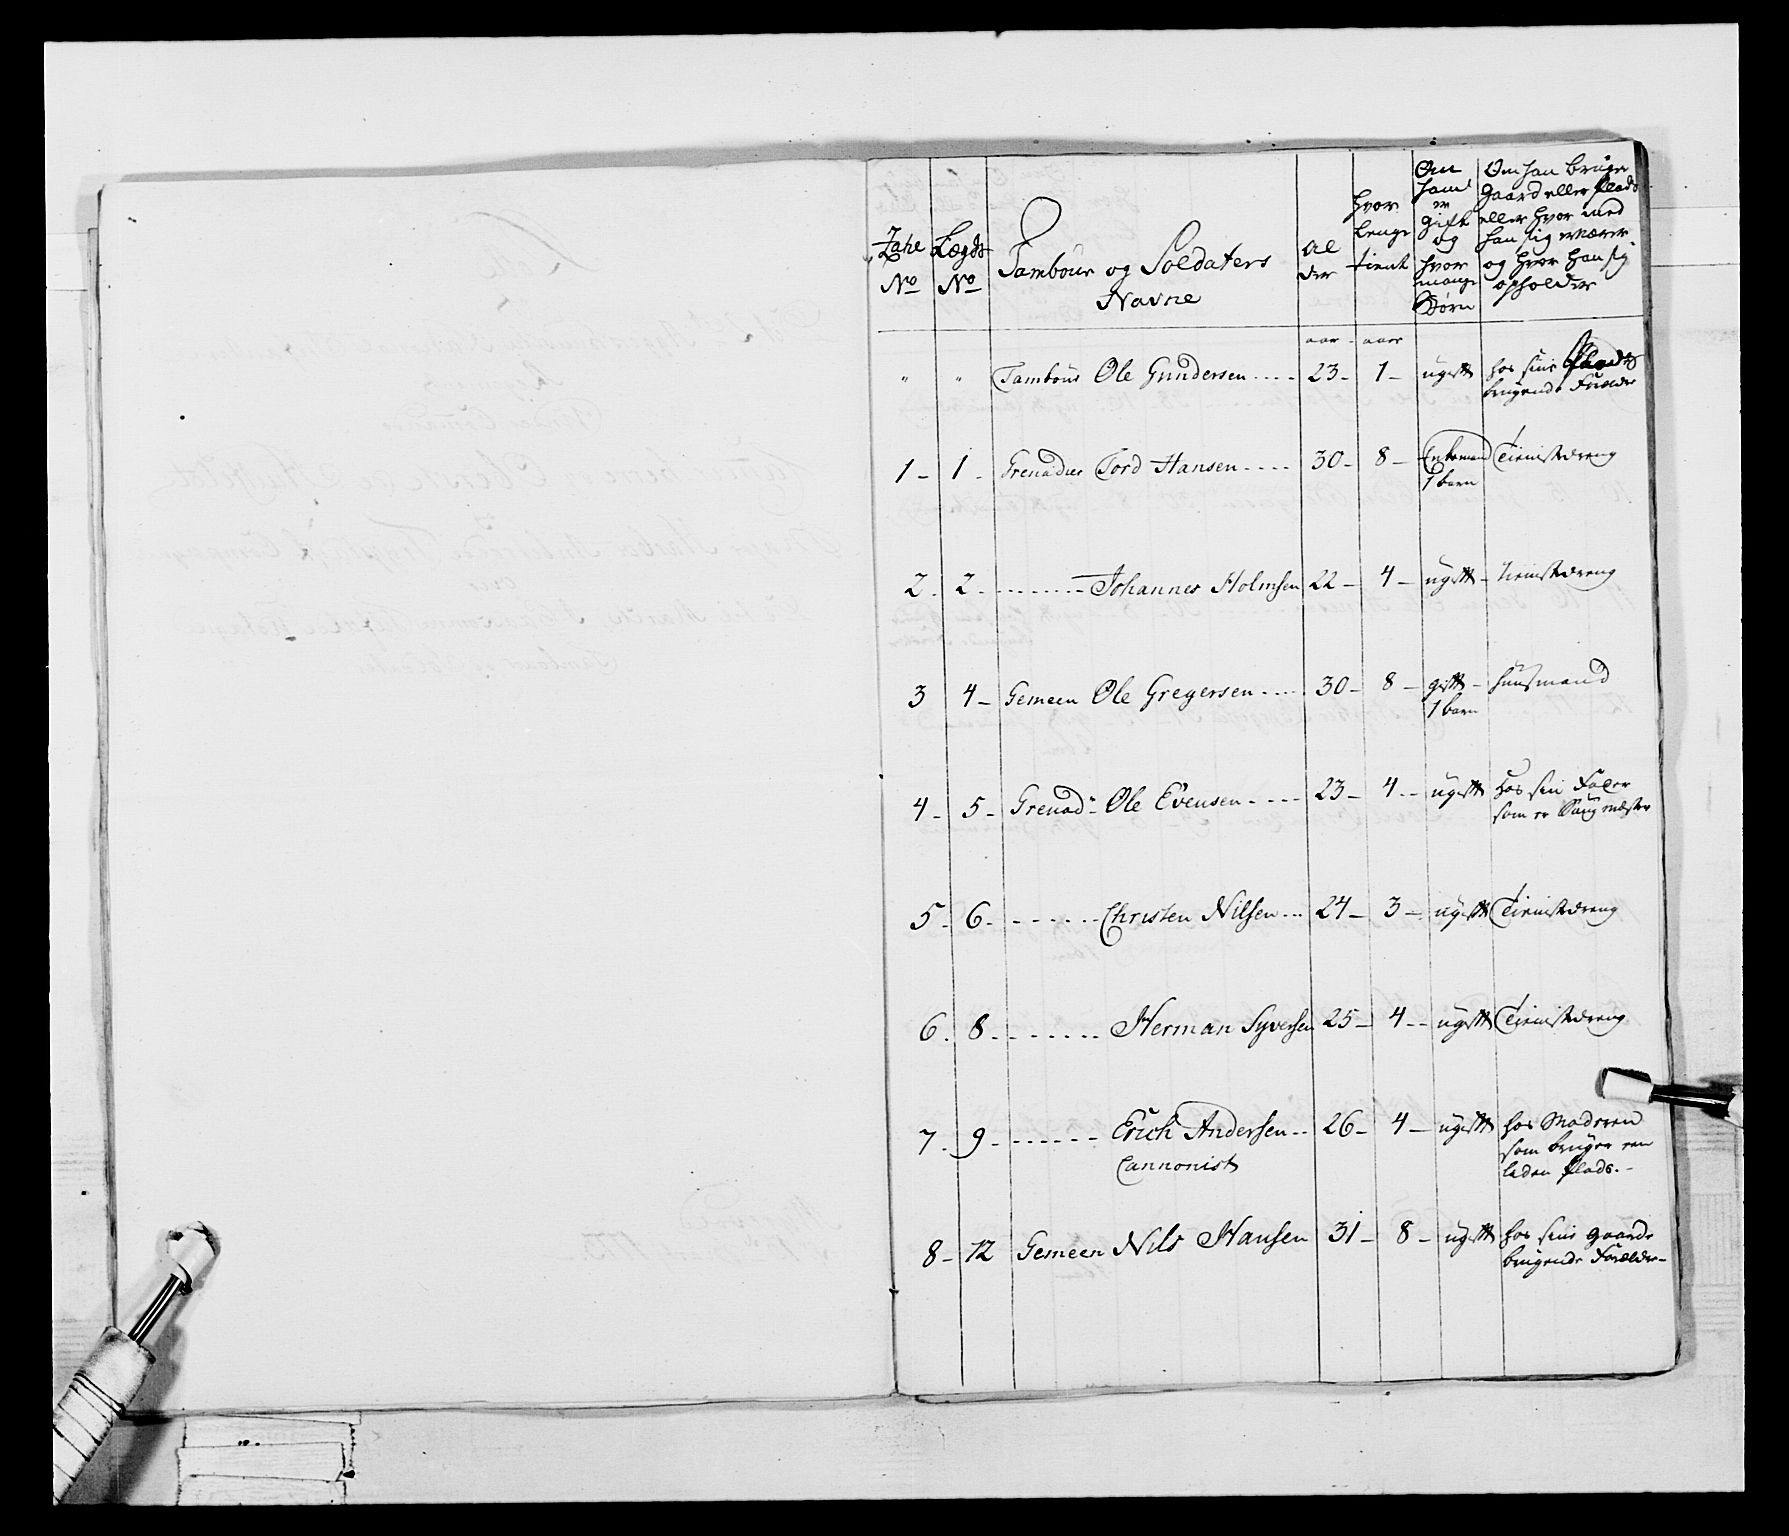 Zahl No
Lægds No
Tambour og Soldaters Navne
Alder
hvor lenge tient
Om hand er gift og hvor mange Børn
Om han bruger gaard eller Plads eller hvor med han sig ernærer og hvor han sig opholder
aar - aar
" " Tambour Ole Gundersen .... 23 - 1 - ugift hos sine Plads
brugende Forældre
1 - 1 - Grenadier Tord Hansen .... 30 - 8 - Enkemand Tienistdreng
1 barn
2 . 2 . ........ Johannes Holmsen 22 - 4 - ugift - tienistdreng
3 4 - Gemeen Ole Gregersen .... 30 - 8 - gift - huusmand
1 barn
4 - 5 - Grenad: Ole Evensen .... 23 - 4 - ugift hos sin Fader
som er Saugmæster
5 . 6 - ...... Christen Nilsen ... 24 - 3 - ugift Tienistdreng
6 . 8 - ....... Herman Syversen 25 - 4 - ugift Tienistdreng
7 . 9 - ...... Erich Andersen .. 26 - 4 - ugift hos Moderen
Cannonist som bruger een
liden Plads. -
8 - 12 Gemeen Nils Hansen 31 - 8 - ugift hos sine gaard
brugende Forældre -